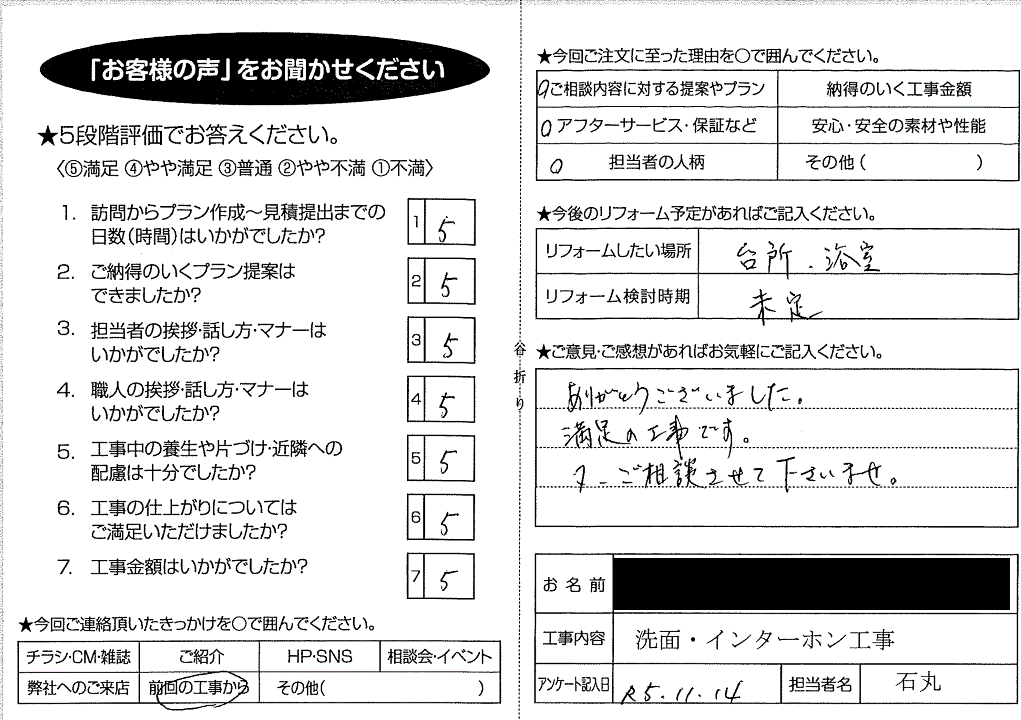 「お客様の声」をお聞かせください
★5段階評価でお答えください。
〈⑤満足 ④やや満足 ③普通 ②やや不満 ①不満〉
1. 訪問からプラン作成～見積提出までの
日数(時間)はいかがでしたか?
1 5
2. ご納得のいくプラン提案は
できましたか?
2 5
3. 担当者の挨拶・話し方・マナーは
いかがでしたか?
3 5
4. 職人の挨拶・話し方・マナーは
いかがでしたか?
4 5
5. 工事中の養生や片づけ・近隣への
配慮は十分でしたか?
5 5
6. 工事の仕上がりについては
ご満足いただけましたか?
6 5
7. 工事金額はいかがでしたか?
7 5
★今回ご連絡頂いたきっかけを〇で囲んでください。
チラシ・CM・雑誌 ご紹介 HP・SNS 相談会・イベント
弊社へのご来店 前回の工事から その他( )
谷折り
★今回ご注文に至った理由を〇で囲んでください。
ご相談内容に対する提案やプラン 納得のいく工事金額
アフターサービス・保証など 安心・安全の素材や性能
担当者の人柄 その他( )
★今後のリフォーム予定があればご記入ください。
リフォームしたい場所 台所、浴室
リフォーム検討時期 未定
★ご意見・ご感想があればお気軽にご記入ください。
ありがとうございました。
満足の工事です。
又、ご相談させて下さいませ。
お名前
工事内容 洗面・インターホン工事
アンケート記入日 R5.11.14 担当者名 石丸